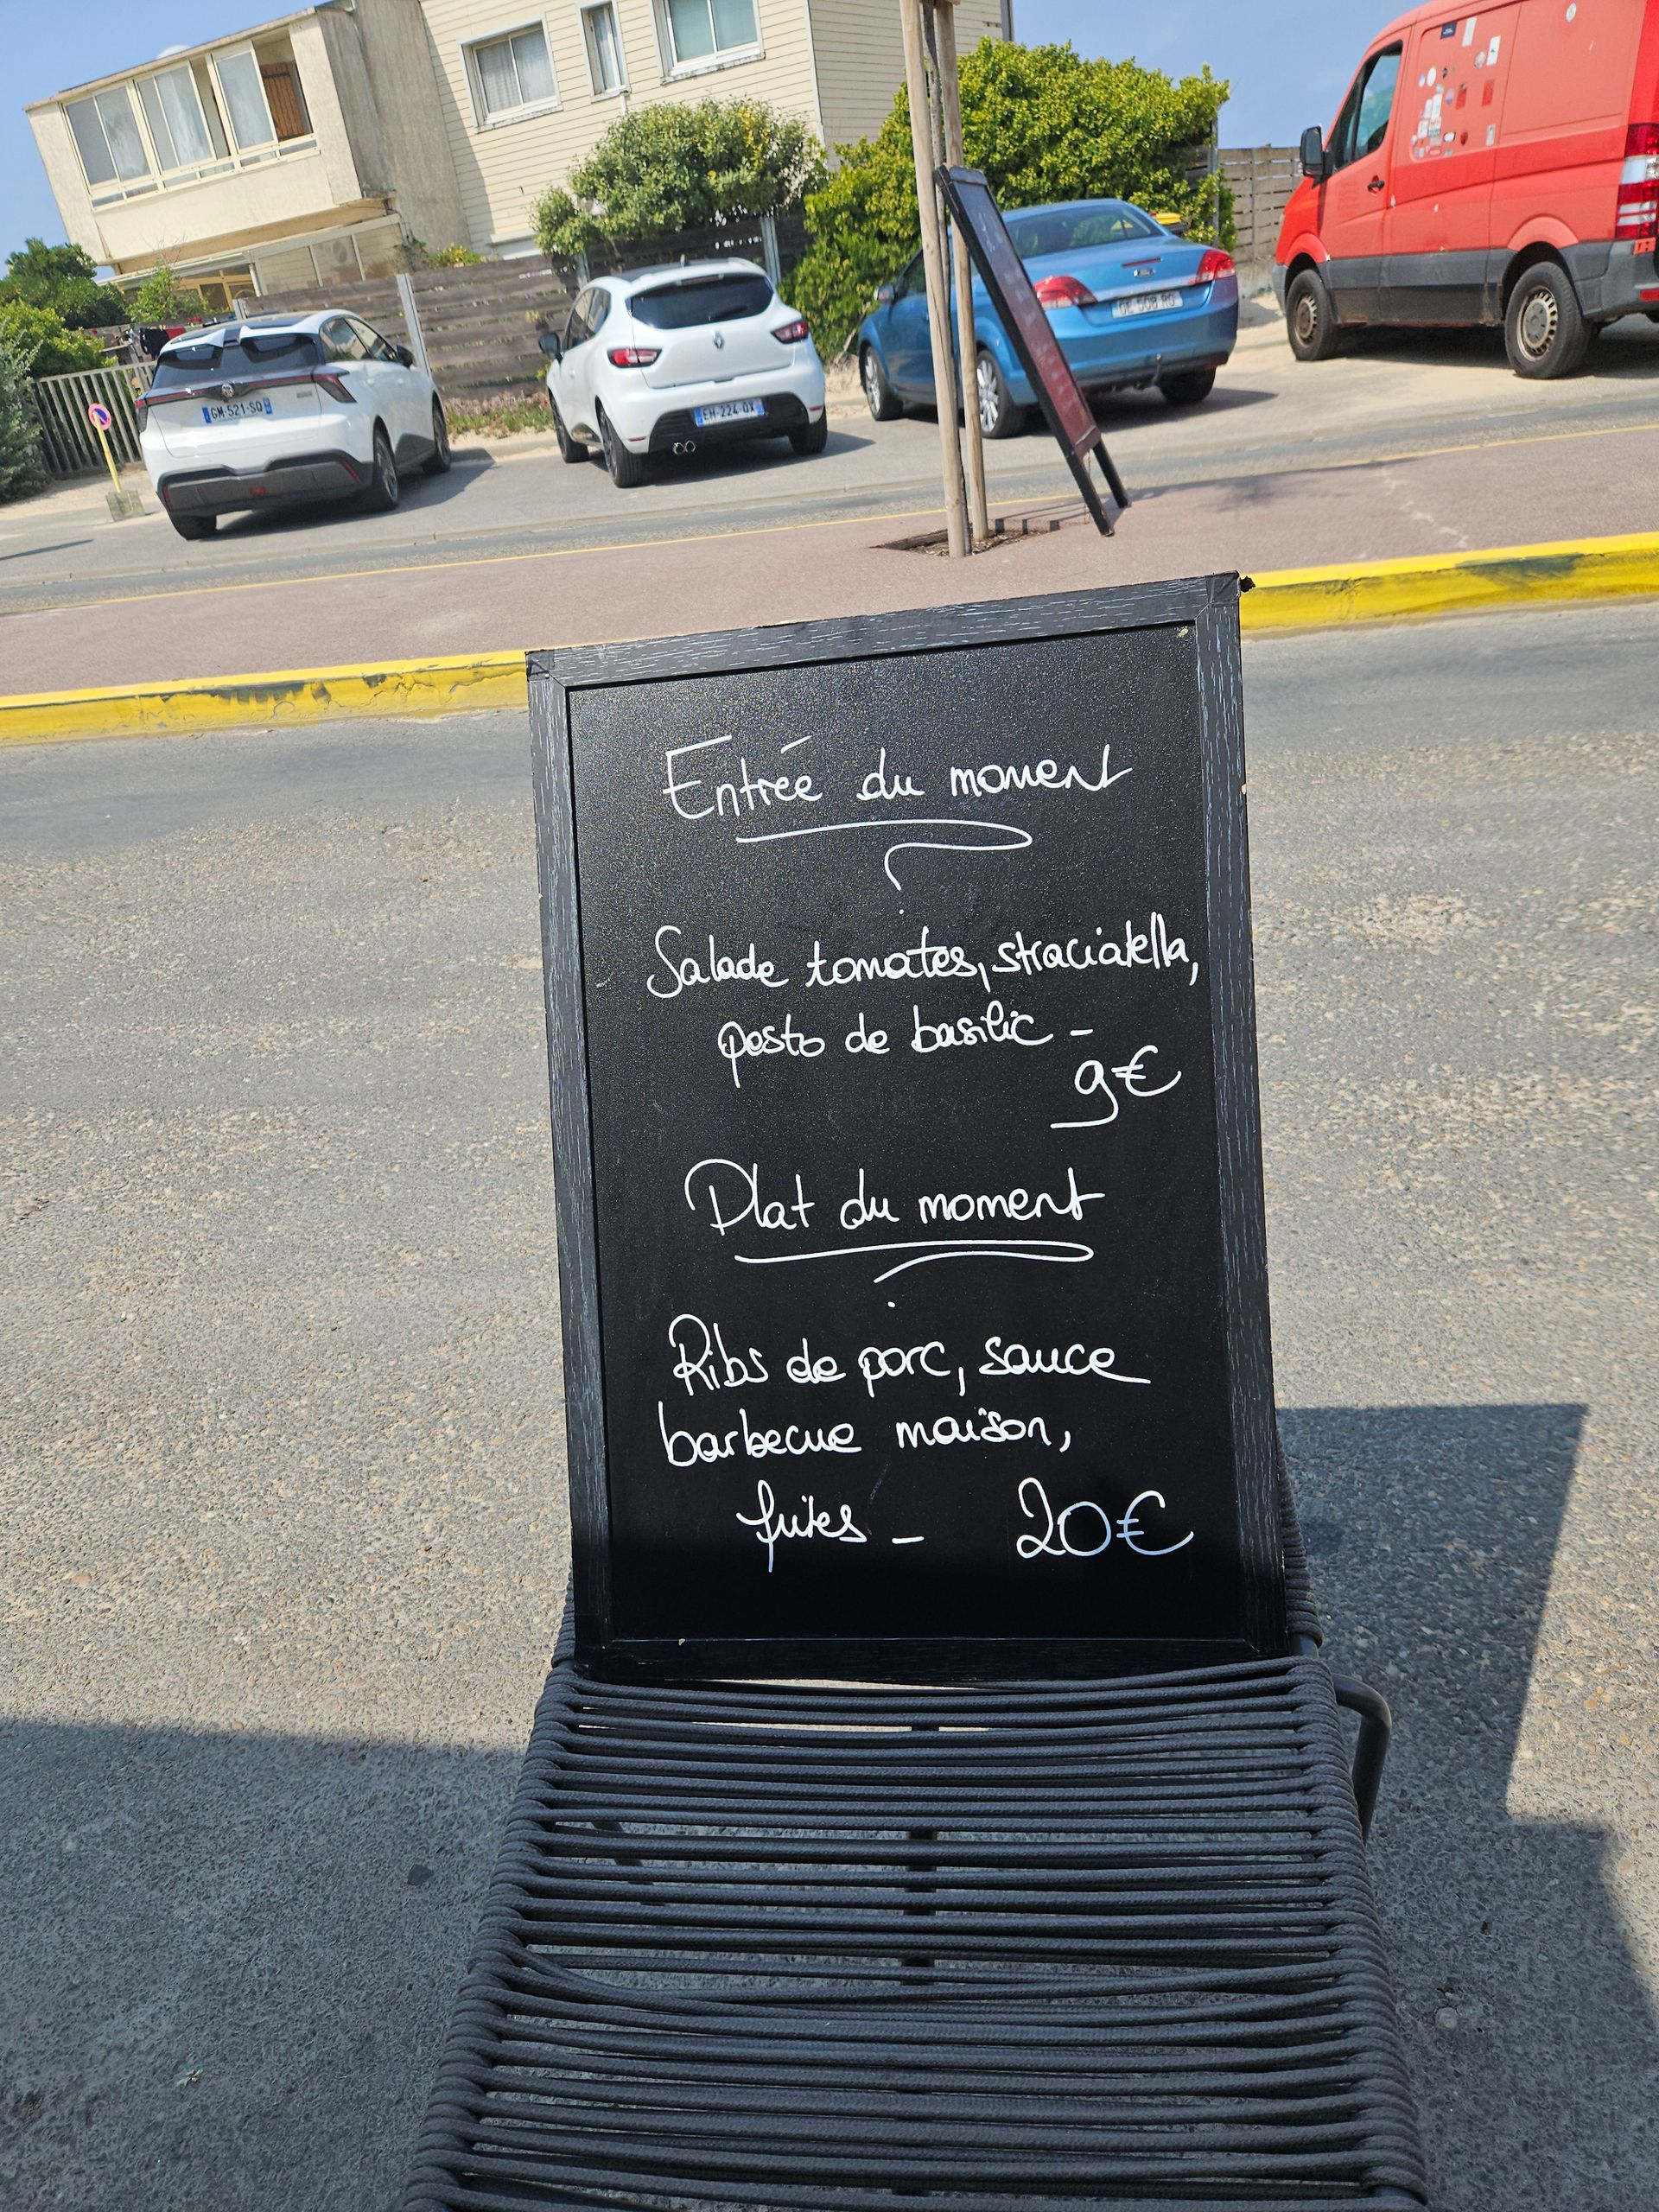 GM-521-SQ
EH-224-QX
Entrée du moment
Salade tomates, straciatella,
pesto de basilic -
9€
Plat du moment
Ribs de porc, sauce
barbecue maison,
frites - 20€